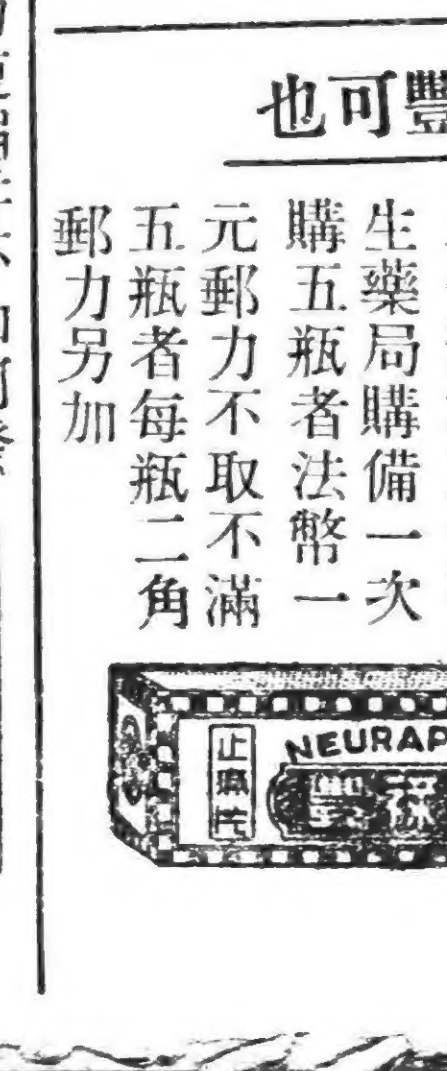 豐可也
生藥局購備一次
購五瓶者法幣一
元郵力不取不滿
五瓶者每瓶二角
郵力另加
NEURAP
止痛片